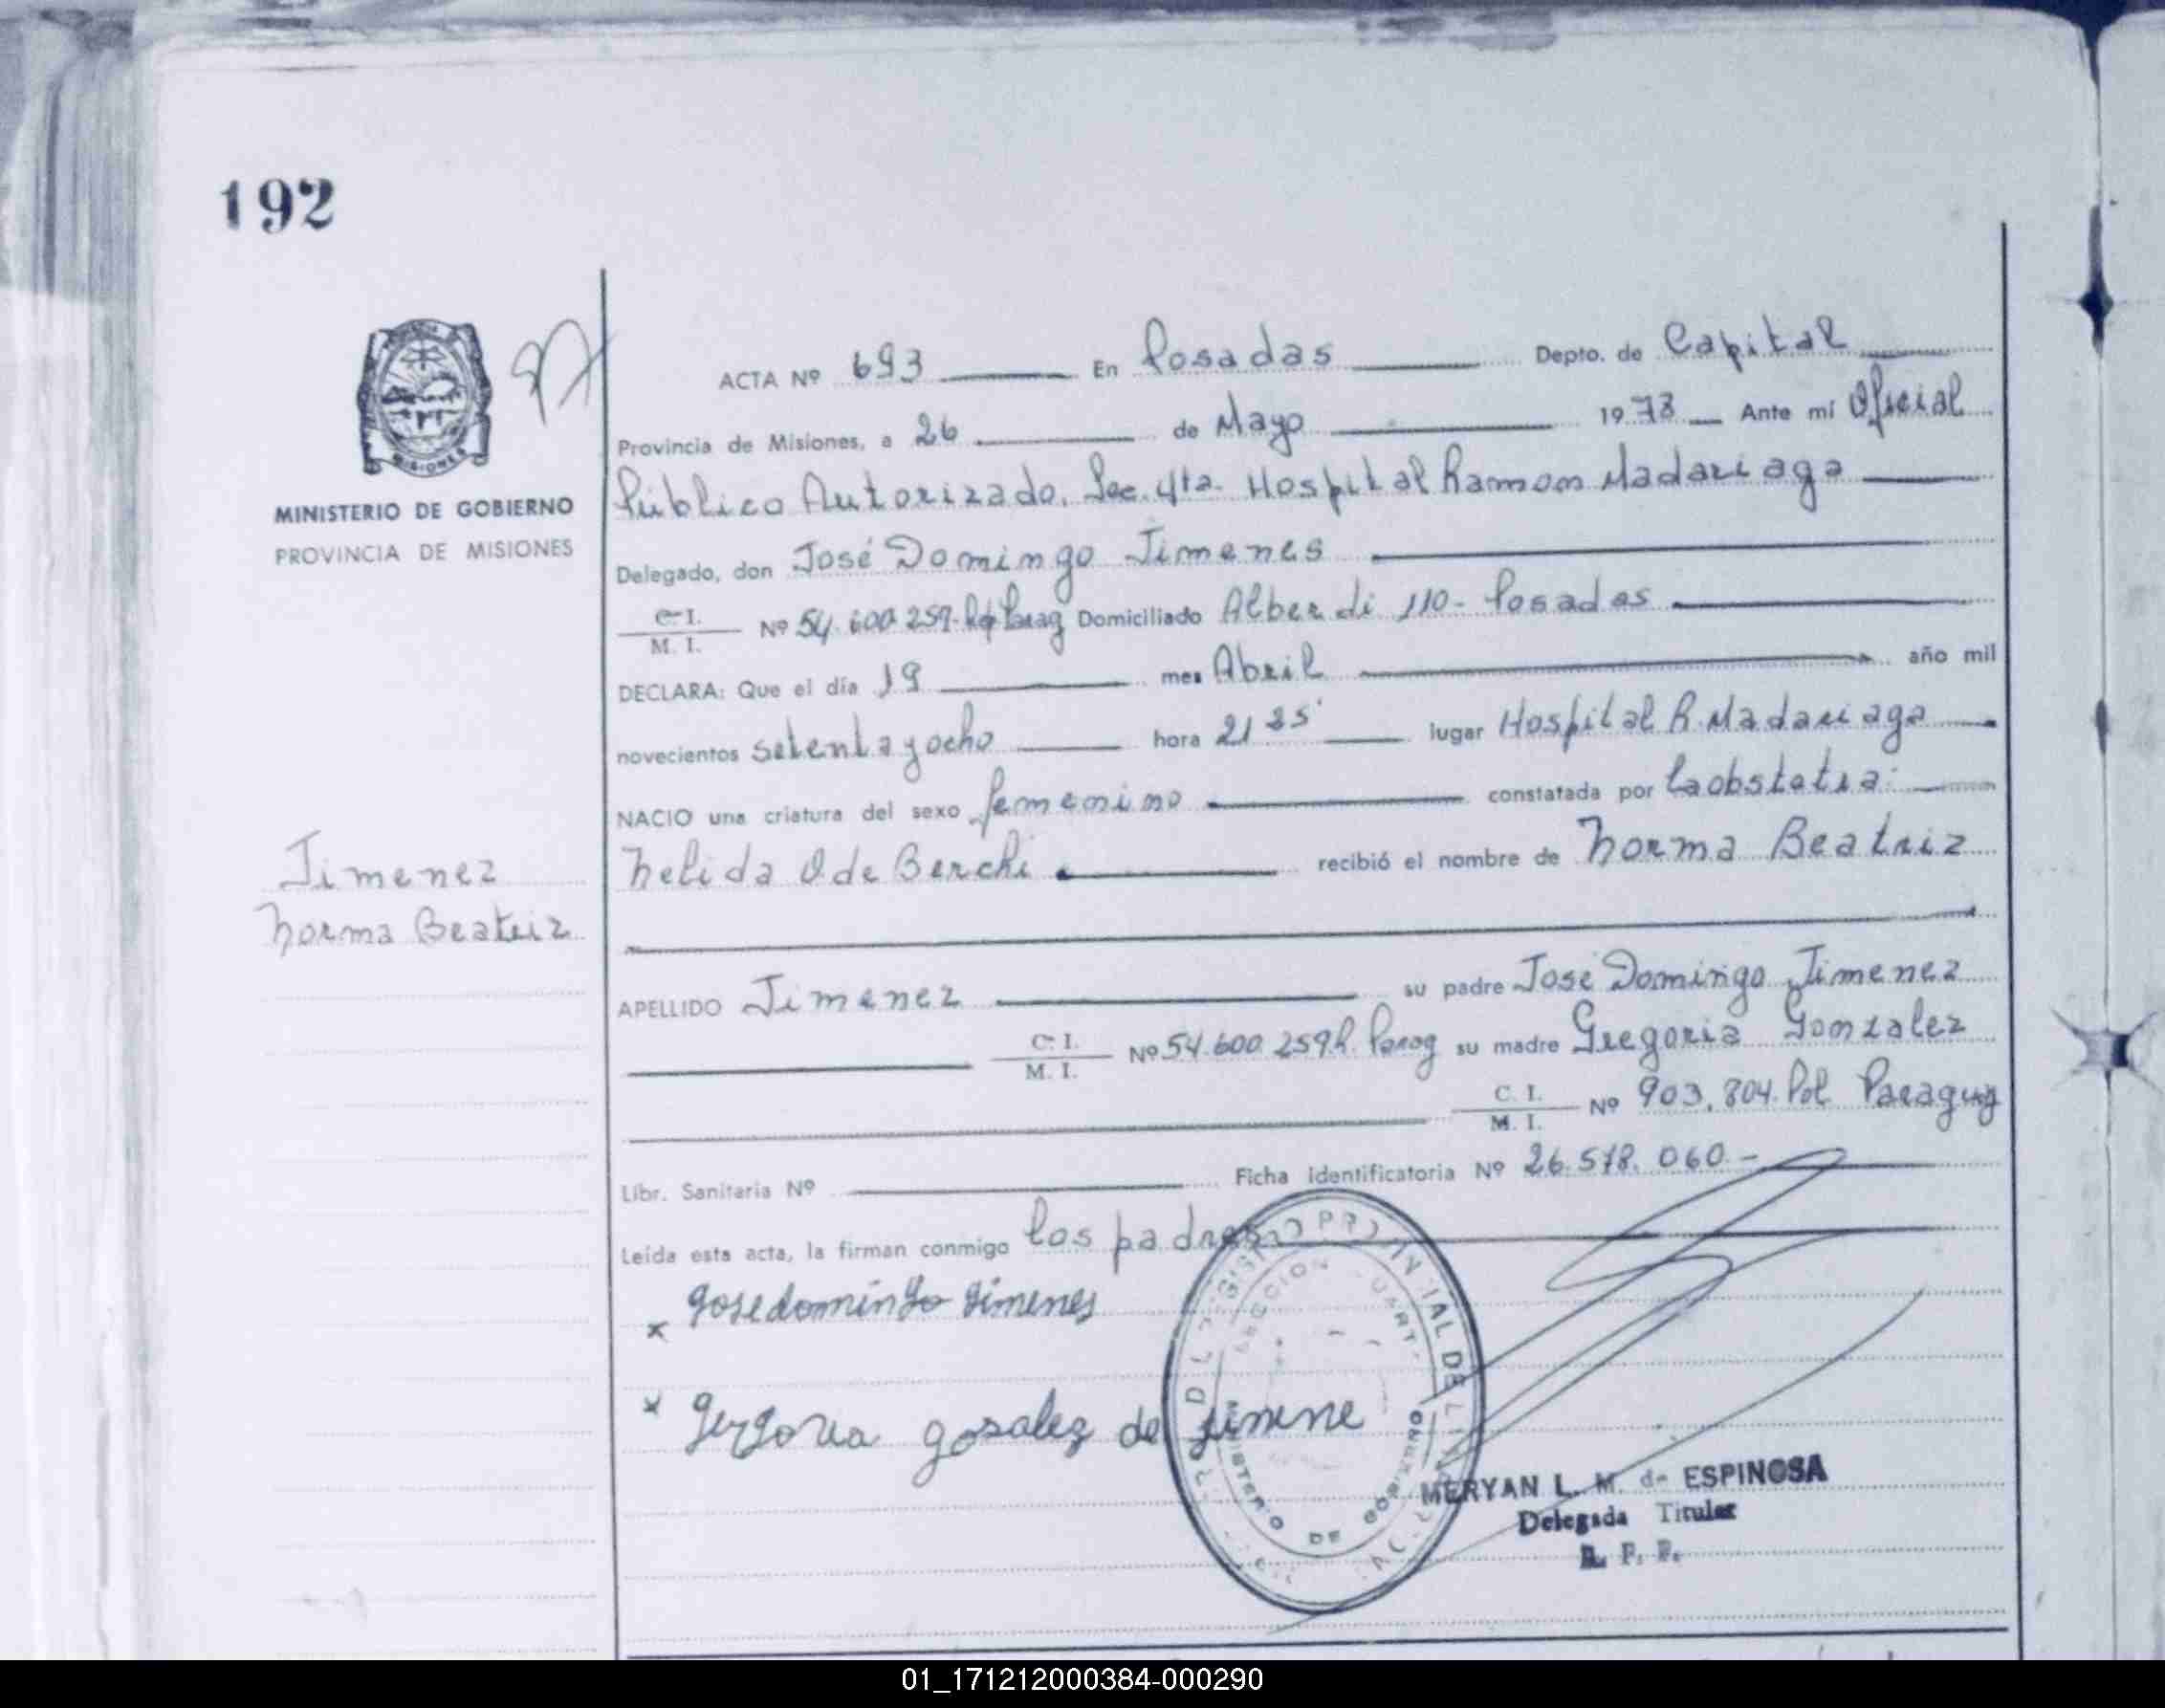 192
MINISTERIO DE GOBIERNO
PROVINCIA DE MISIONES
Jimenez
Norma Beatriz
ACTA Nº 693 En Posadas Depto. de Capital
Provincia de Misiones, a 26 de Mayo 1978 Ante mí Oficial
Público Autorizado. Sec. 4ta. Hospital Ramon Madariaga
Delegado, don José Domingo Jimenes
C. I.
M. I.
Nº 54.600.259- Rep Parag Domiciliado Alberdi 110- Posadas
DECLARA: Que el día 19 mes Abril año mil
novecientos setenta y ocho hora 21 25' lugar Hospital R. Madariaga
NACIO una criatura del sexo femenino constatada por la obstetra:
Nelida O de Berchi recibió el nombre de Norma Beatriz
APELLIDO Jimenez su padre José Domingo Jimenez
C. I.
M. I.
Nº 54.600.259 R. Parag su madre Gregoria Gonzalez
C. I.
M. I.
Nº 903.804. Pol Paraguay
Libr. Sanitaria Nº Ficha identificatoria Nº 26.518.060.-
Leída esta acta, la firman conmigo los padres
x Jose domingo Jimenes
x Gergoria gosalez de jimene
MINISTERIO DE GOBIERNO
MERYAN L. M. de ESPINOSA
Delegada Titular
R. P. P.
01_171212000384-000290